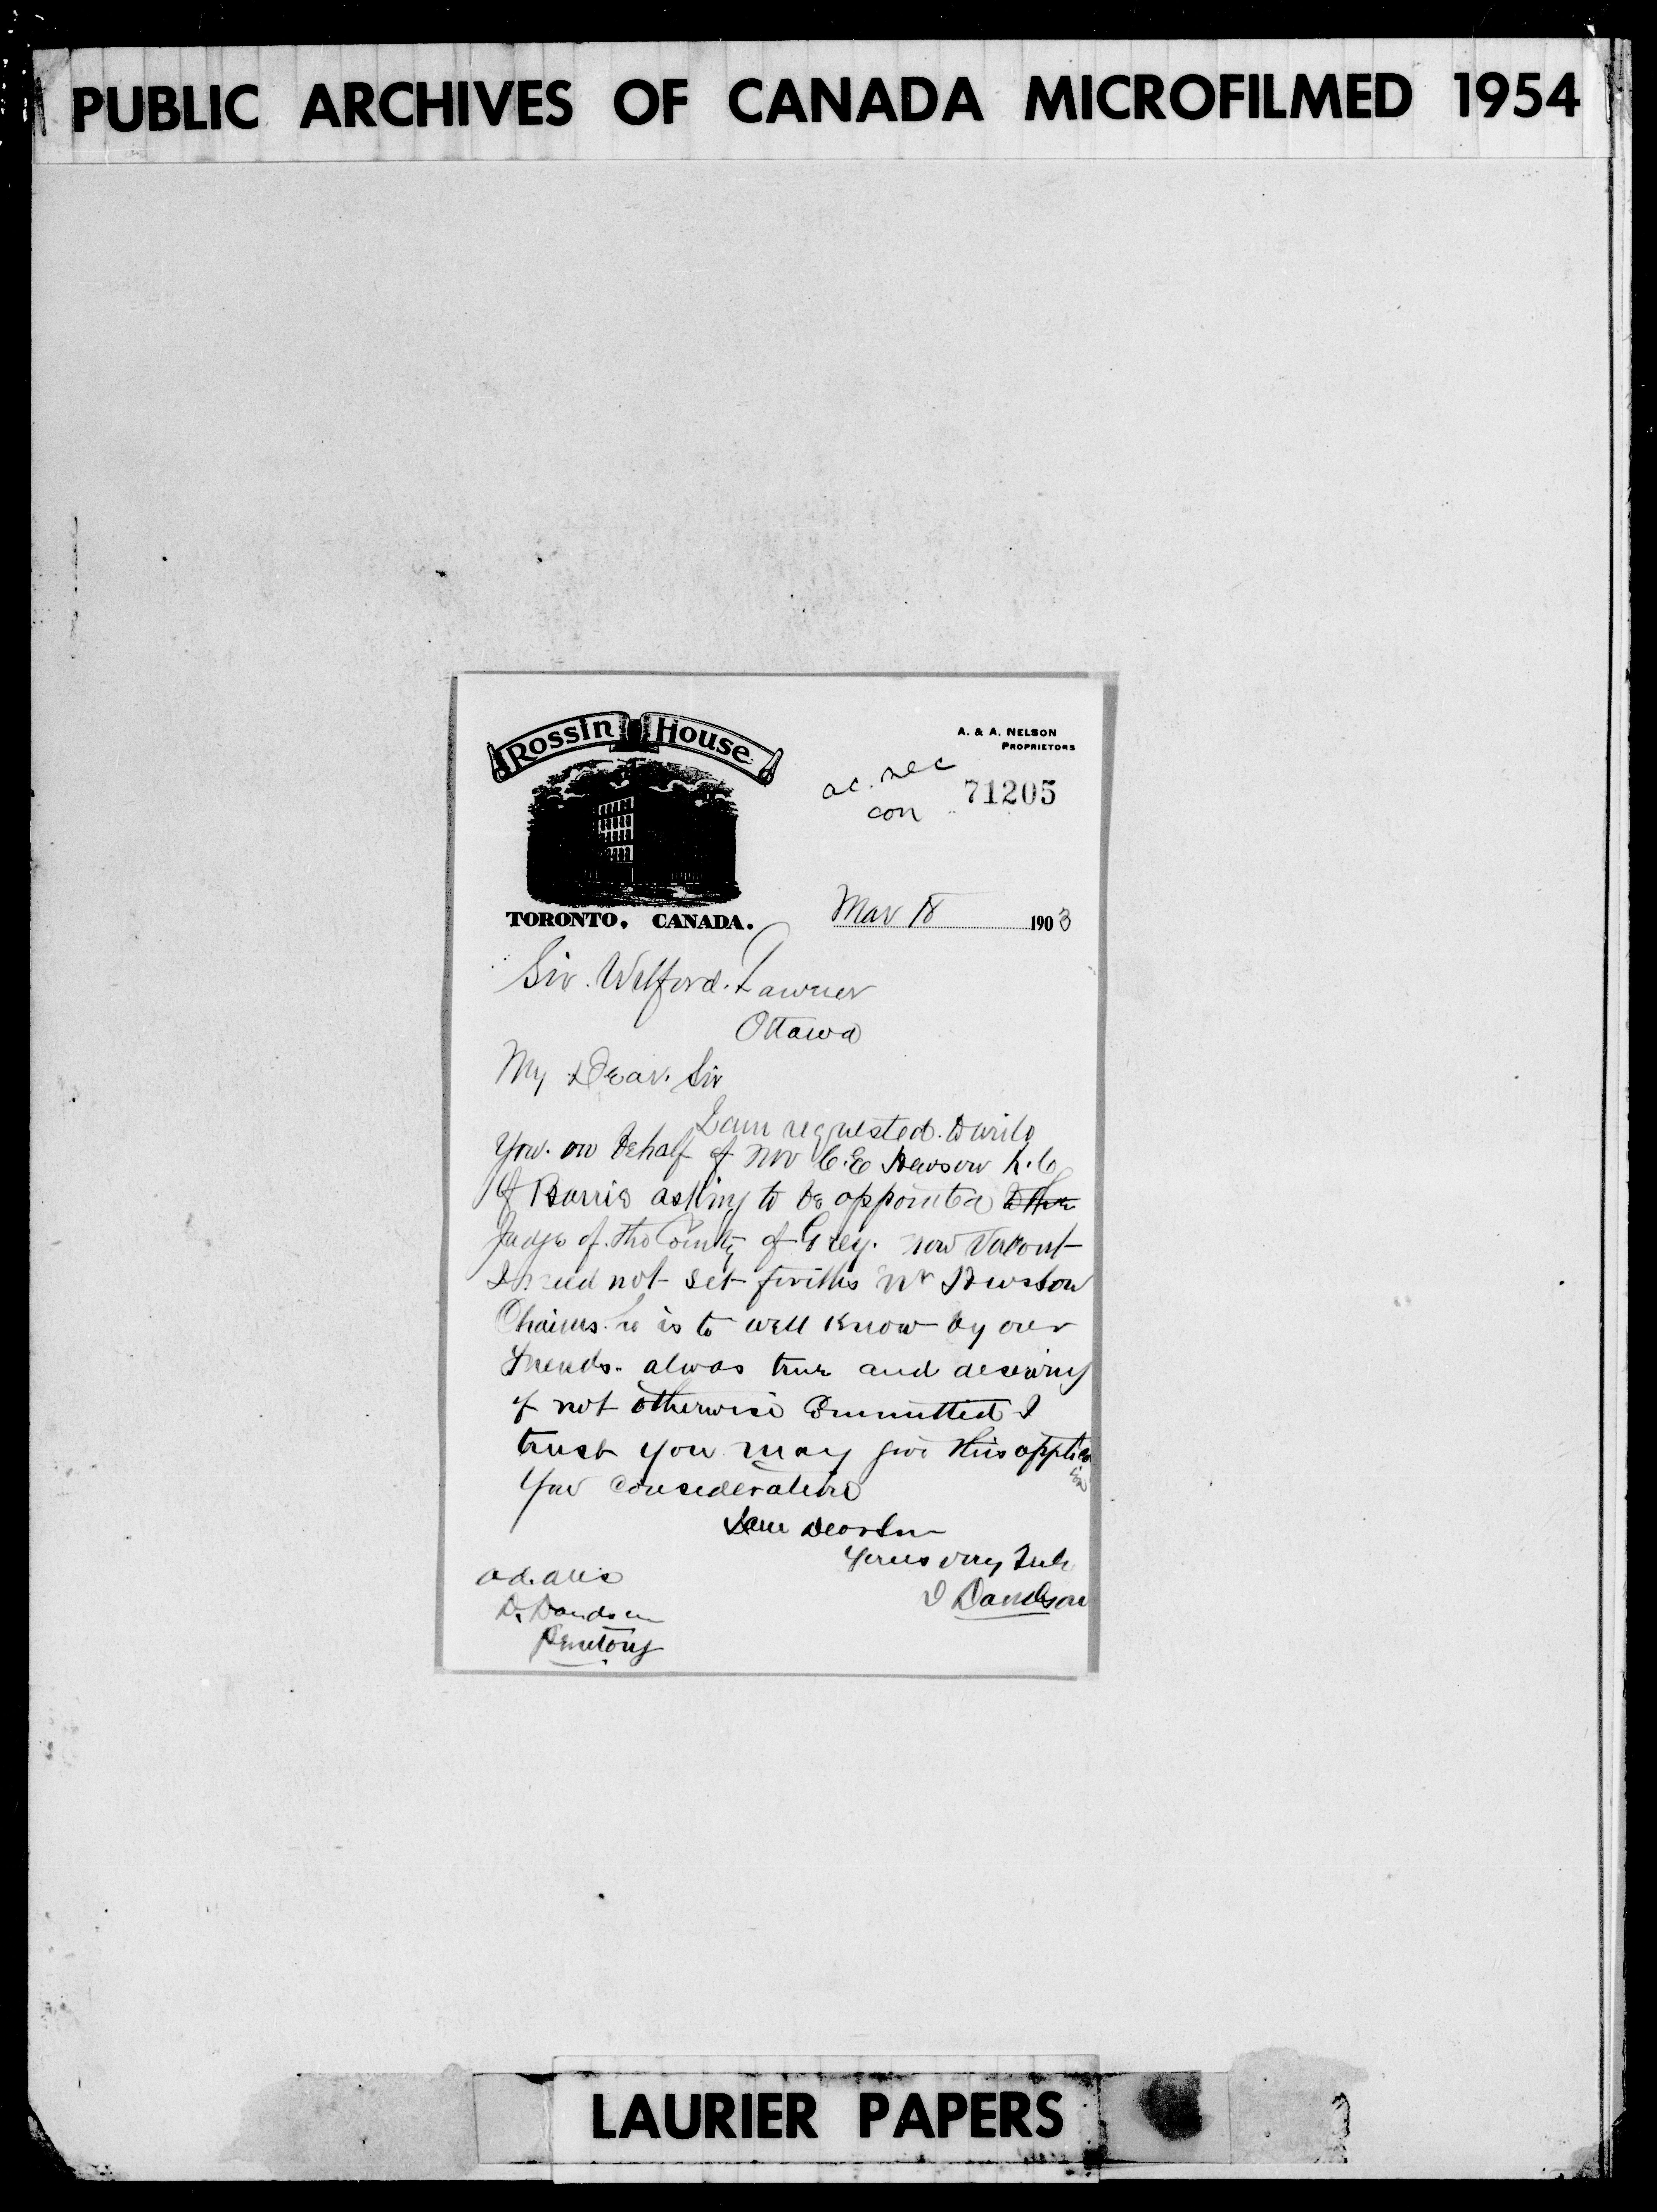 PUBLIC ARCHIVES OF CANADA MICROFILMED 1954
Rossin House
A. & A. NELSON
PROPRIETORS
ac. rec
con
71205
TORONTO, CANADA.
Mar 18 1903
Sir. Wilford. Lawrier
Ottawa
My Dear. Sir
I am requested. to write
You. on behalf of Mr C. E Hewson K. C
Of Barrie asking to be appointed
Judge of. the County of Grey. now Vacant
I need not set forth Mr Hewson
Claims. he is to well Know by our
Friends. alwas true and deserving
if not otherwise Committed I
trust you may give this application
Your Consideration
I am Dear Sir
Yours very Truly
D Davidson
ad.
D. Davidson
Penetang
LAURIER PAPERS